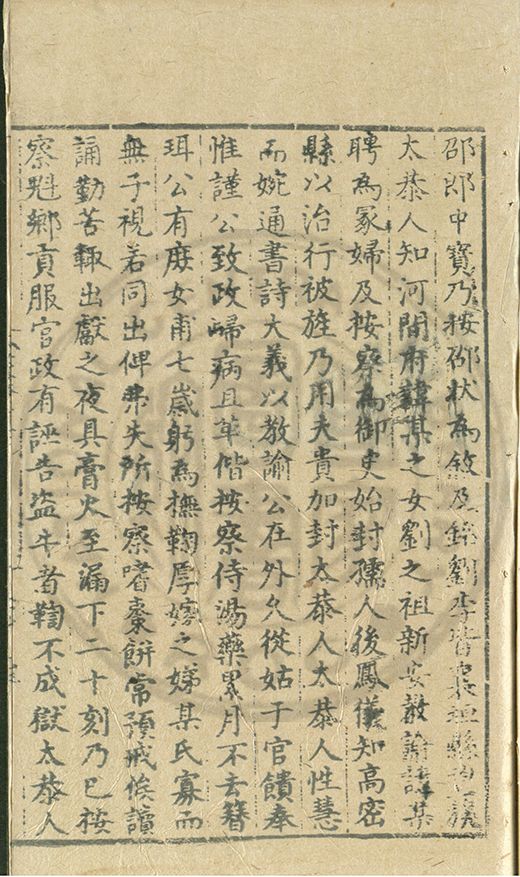 邵郎中寶乃按邵狀為敘及銘劉李皆長垣縣
太恭人知河間府韓某之女劉之祖新安教諭諱某
聘為冢婦及按察為御史始封孺人後鳳儀知高密
縣以治行被旌乃用夫貴加封太恭人太恭人性慧
而婉通書詩大義以教諭公在外久從姑于官饋奉
惟謹公致政歸病且革偕按察侍湯藥累月不去簪
珥公有庶女甫七歲躬為撫鞠厚嫁之娣某氏寡而
無子視若同出俾弗失所按察嗜棗餅常預戒俟讀
誦勤苦輒出獻之夜具膏火至漏下二十刻乃已按
察魁鄉貢服官政有誣告盜牛者鞫不成獄太恭人